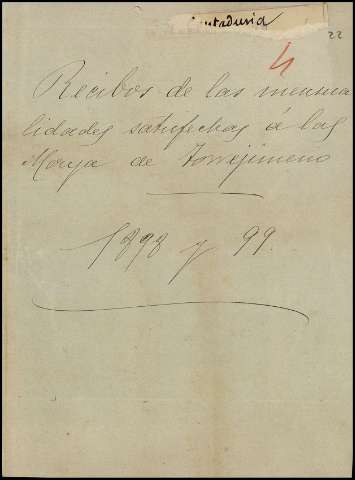 ntaduria
4
22
Recibos de las mensua
lidades satisfechas á las
Monja de Torrejimeno
1898 y 99.